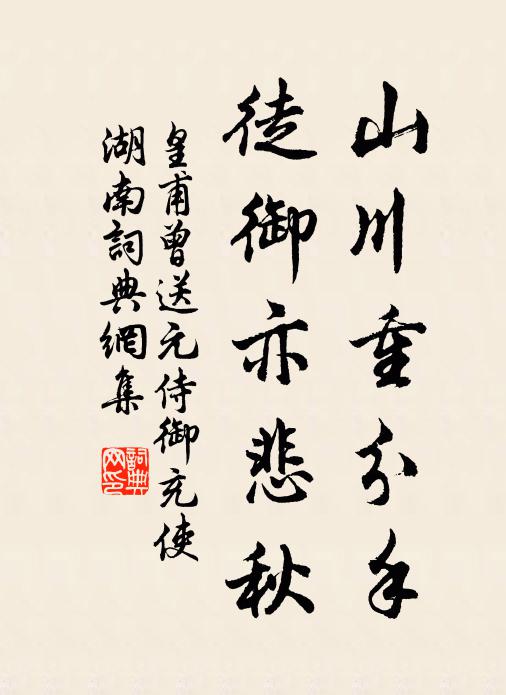 山川重分手
徒御亦悲秋
皇甫曾送元侍御充使
湖南詞典網集
詞典
网印